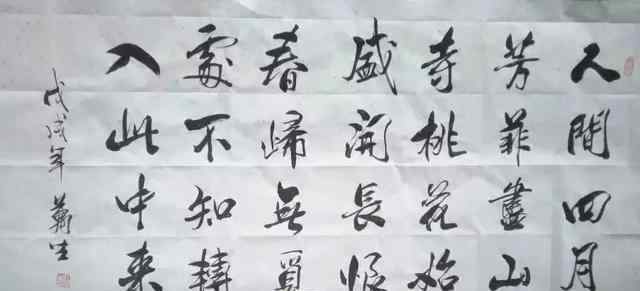 人間四月
芳菲盡山
寺桃花始
盛開長恨
春歸無覓
處不知轉
入此中来
戊戌年